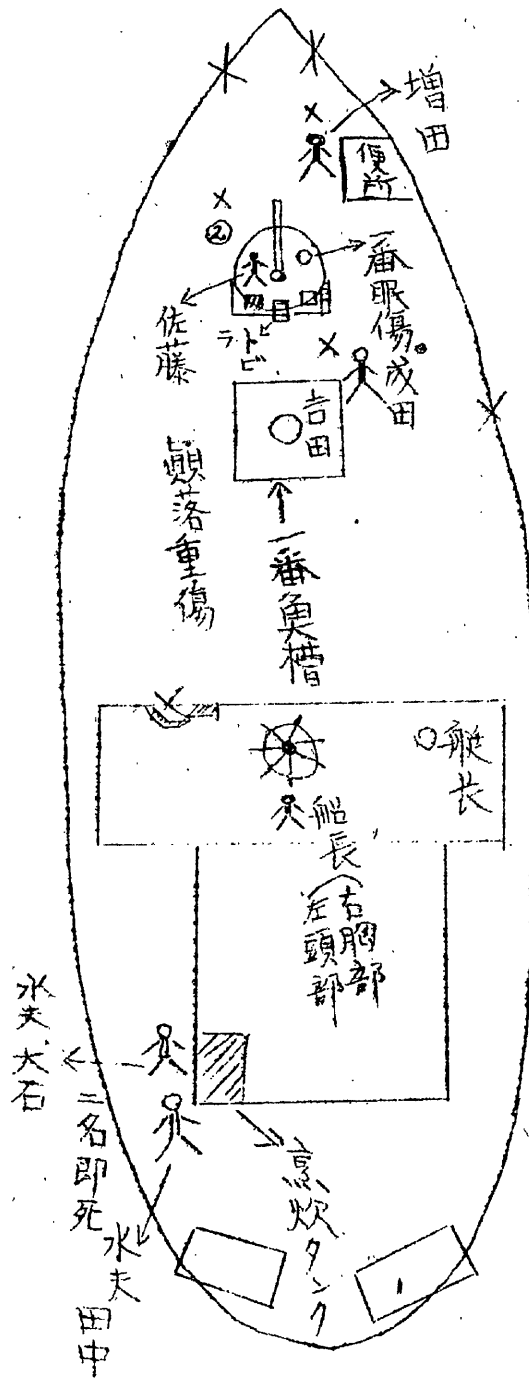 増田
便所
②
一番眼傷
成田
佐藤
トビラ
吉田
顛落重傷
一番魚槽
艇長
船長(右胸部
左頭部)
水夫大石
二名即死
水夫田中
タンク